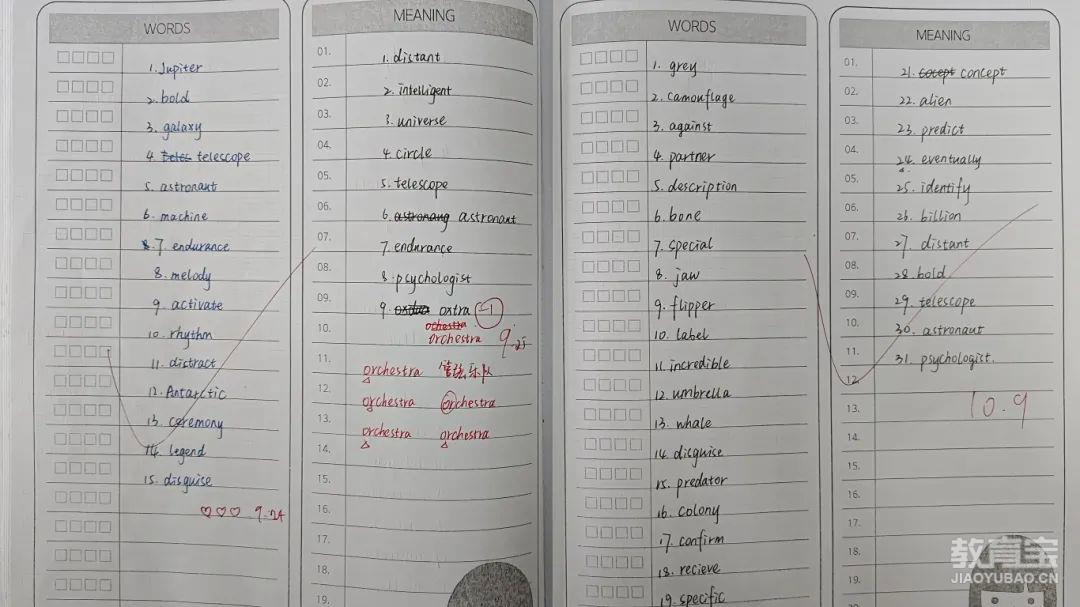 WORDS
1. Jupiter
2. bold
3. galaxy
4. teles telescope
5. astronaut
6. machine
7. endurance
8. melody
9. activate
10. rhythm
11. distract
12. Antarctic
13. ceremony
14. legend
15. disguise
♡♡♡ 9.24
MEANING
01. 1. distant
02. 2. intelligent
03. 3. universe
04. 4. circle
05. 5. telescope
06. 6. astronaug astronaut
07. 7. endurance
08. 8. psychologist
09. 9. ostra -1
10. orchestra
orchestra 9.25
11. orchestra 管弦乐队
12. orchestra orchestra
13. orchestra orchestra
14.
15.
16.
17.
18.
19.
WORDS
1. grey
2. camouflage
3. against
4. partner
5. description
6. bone
7. special
8. jaw
9. flipper
10. label
11. incredible
12. umbrella
13. whale
14. disguise
15. predator
16. colony
17. confirm
18. recieve
19. specific
MEANING
01. 21. cocept concept
02. 22. alien
03. 23. predict
04. 24. eventually
05. 25. identify
06. 26. billion
07. 27. distant
08. 28. bold
09. 29. telescope
10. 30. astronaut
11. 31. psychologist.
12.
13. 10.9
14.
15.
16.
17.
18.
19.
教育宝
JIAOYUBAO.CN